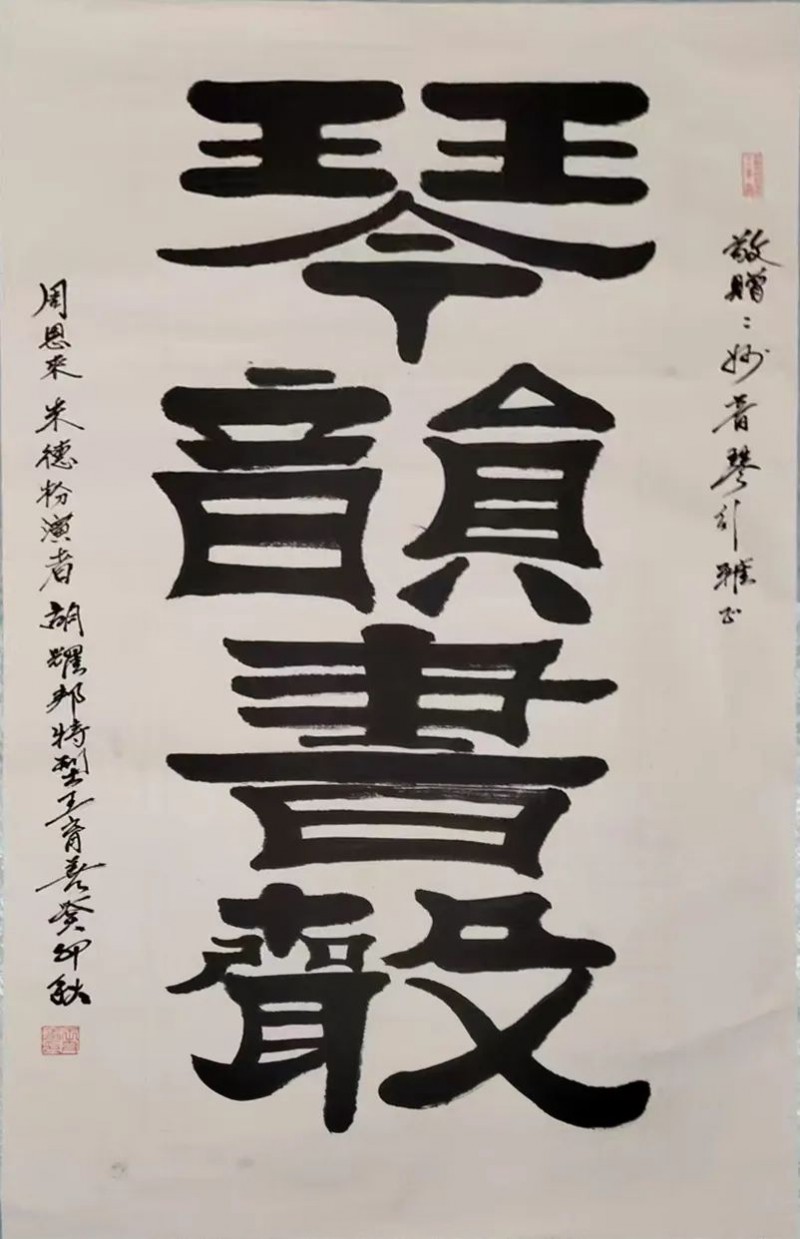 敬贈：妙音琴行雅正
琴韻書聲
周恩來 朱德扮演者 胡耀邦特型王育癸卯秋